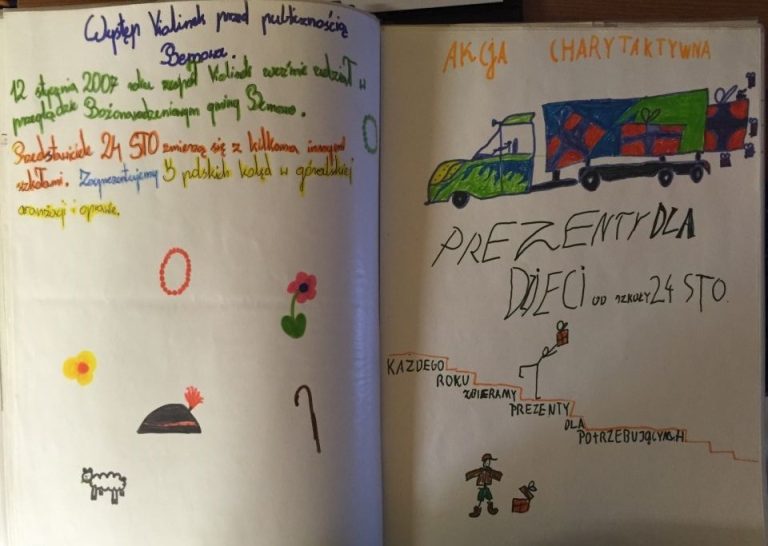 Występ Kalinek przed publicznością
Bemowa.
12 stycznia 2007 roku zespół Kalinek weźmie udział w
przeglądzie Bożonarodzeniowym gminy Bemowo.
Przedstawiciele 24 STO zmierzą się z kilkoma innymi
szkołami. Zaprezentujemy 3 polskich kolęd w góralskiej
aranżacji i oprawie.
AKCJA CHARYTAKTYWNA
PREZENTY DLA
DZIECI OD SZKOŁY 24 STO.
KAŻDEGO
ROKU
ZBIERAMY
PREZENTY
DLA
POTRZEBUJĄCYCH